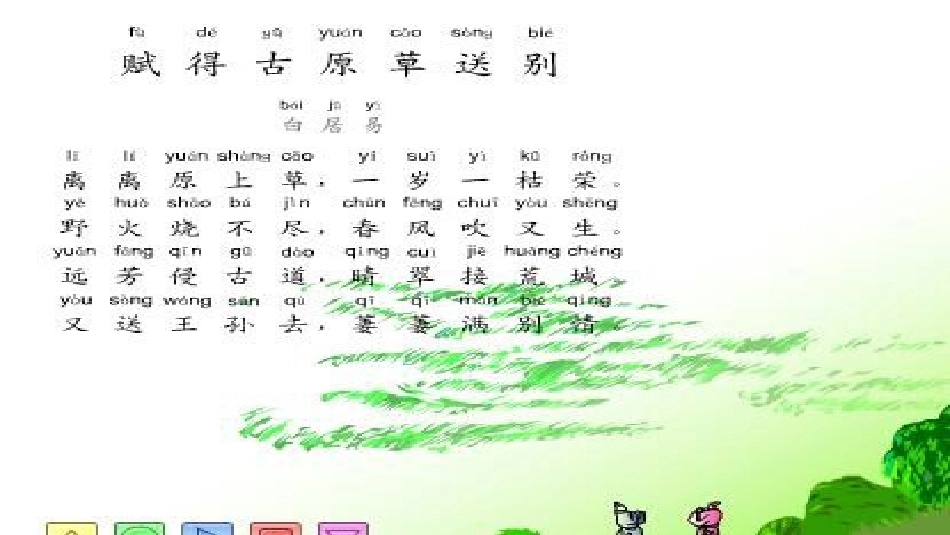 fù dé gǔ yuán cǎo sòng bié
赋得古原草送别
bái jū yì
白居易
lí lí yuán shàng cǎo yí suì yì kū róng
离离原上草，一岁一枯荣。
yě huǒ shāo bú jìn chūn fēng chuī yòu shēng
野火烧不尽，春风吹又生。
yuǎn fāng qīn gǔ dào qíng cuì jiē huāng chéng
远芳侵古道，晴翠接荒城。
yòu sòng wáng sūn qù qī qī mǎn bié qíng
又送王孙去，萋萋满别情。